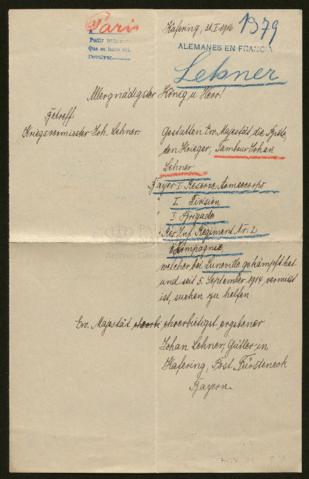 Paris
Käfering, 21. I. 1916
1379
Pedir noticias
Que se haga
ALEMANES EN FRANCIA
Lehner
Allergnädigster König u. Herr!
Betreff
Kriegsvermisster Joh. Lehner
Gestatten Ew. Majestät die Bitte,
den Krieger, Tambour Johan
Lehner
Bayer. I. Reserve Armeecorps
I. Division
I. Brigade
Res. Inf. Regiment Nr. 2
Kompagnie
welcher bei Luneville gekämpft hat
und seit 5. September 1914 vermisst
ist, suchen zu helfen
Ew. Majestät ehrerbietigst ergebener
Johan Lehner, Gütler, in
Käfering, Post Fürsteneck
Bayern.